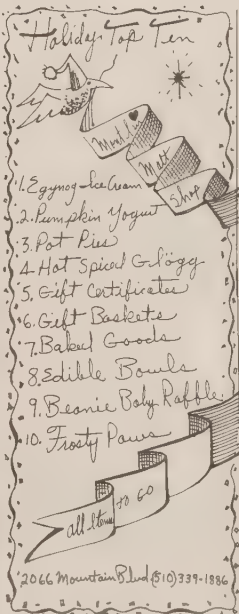 Holiday Top Ten
Montclair
Malt
Shop
1. Eggnog Ice Cream
2. Pumpkin Yogurt
3. Pot Pies
4. Hot Spiced Glögg
5. Gift Certificates
6. Gift Baskets
7. Baked Goods
8. Edible Bowls
9. Beanie Baby Raffle
10. Frosty Paws
all Items to go
2066 Mountain Blvd (510) 339-1886